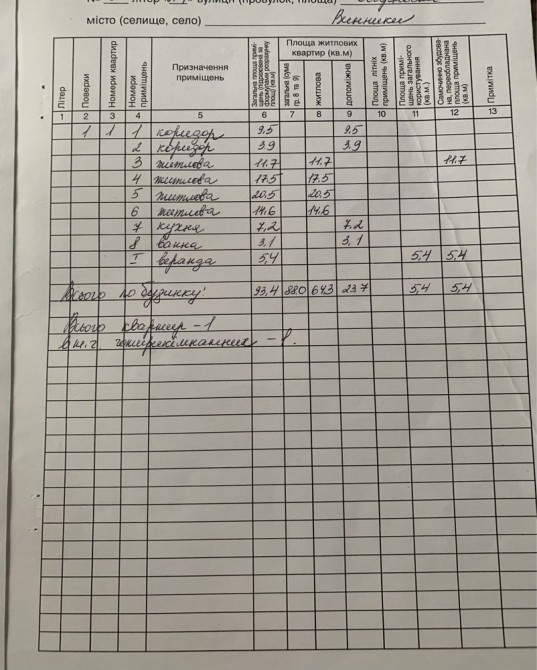 вулиця (провулок, площа)
місто (селище, село) Винники
Літер Поверхи Номери квартир Номери приміщень Призначення приміщень Загальна площа приміщень (підрахована за формулами розрахунку площ) (кв.м) Площа житлових квартир (кв.м) загальна (сума гр. 8 та 9) житлова допоміжна Площа літніх приміщень (кв.м) Площа приміщень загального користування (кв.м.) Самочинно збудована, переобладнана площа приміщень (кв.м) Примітка
1 2 3 4 5 6 7 8 9 10 11 12 13
1 1 1 коридор 9.5 9.5
2 коридор 3.9 3.9
3 житлова 11.7 11.7 11.7
4 житлова 17.5 17.5
5 житлова 20.5 20.5
6 житлова 14.6 14.6
7 кухня 7,2 7.2
8 ванна 3,1 3,1
I веранда 5,4 5,4 5,4
Всього по будинку: 93,4 88.0 64.3 23.7 5,4 5,4
Всього квартир - 1
в т.ч. чотирикімнатних - 1.